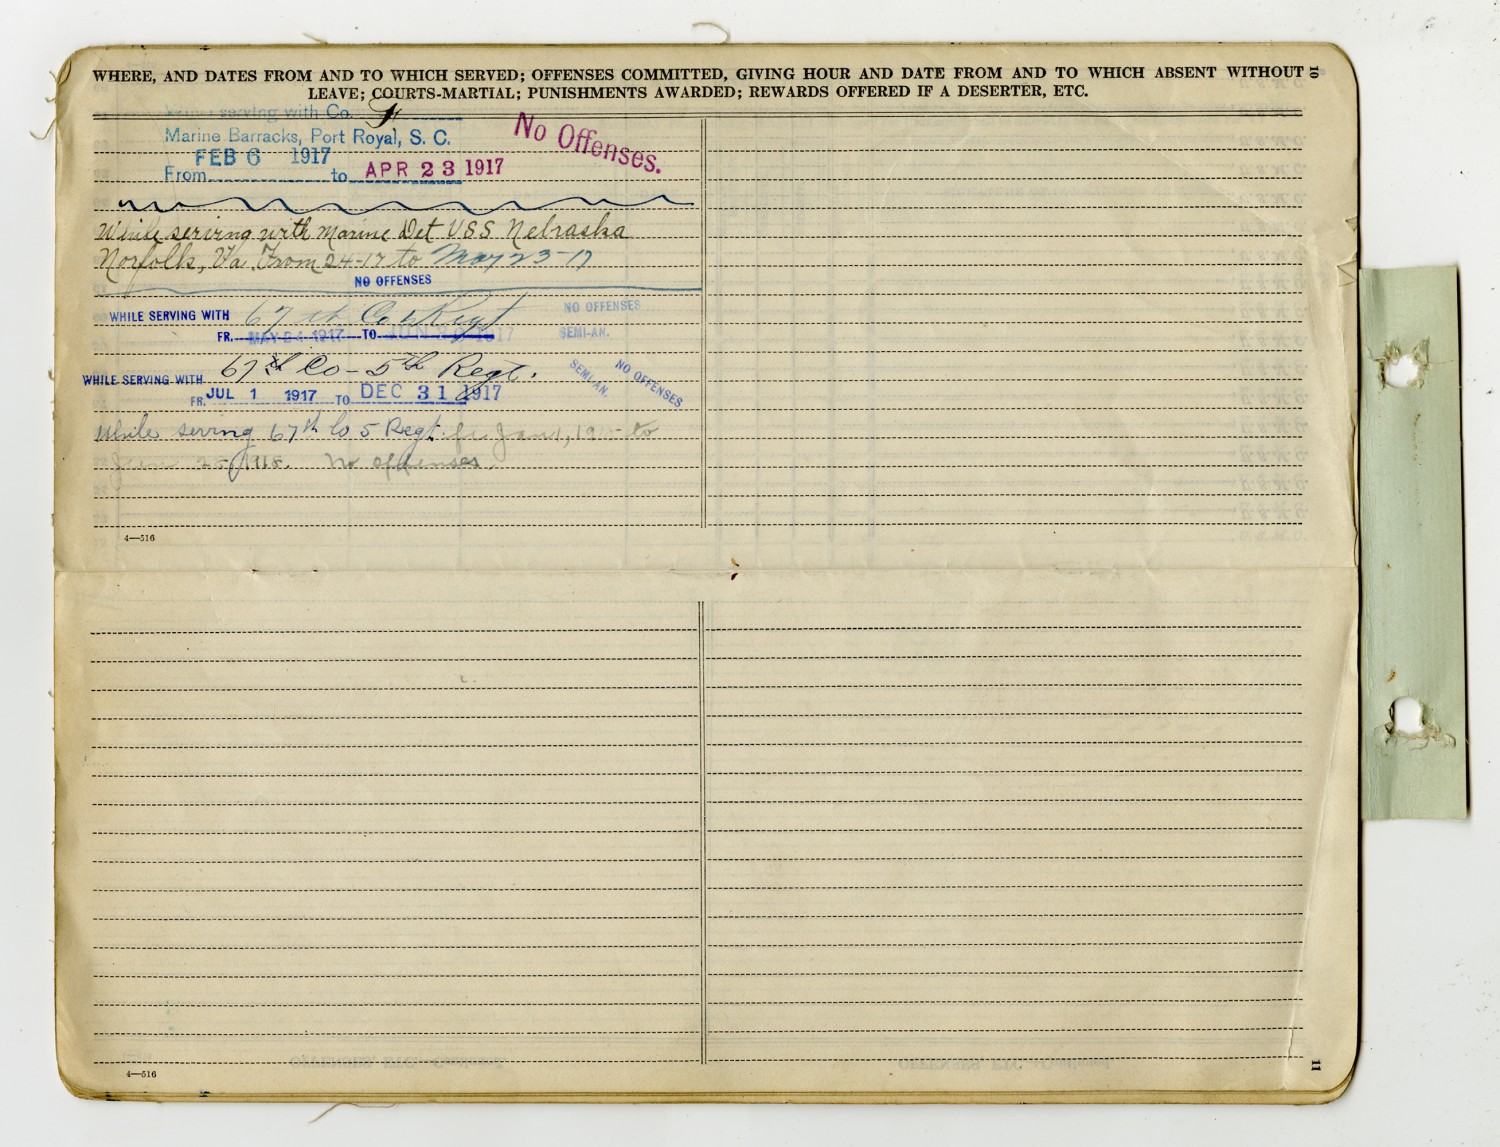 WHERE, AND DATES FROM AND TO WHICH SERVED; OFFENSES COMMITTED, GIVING HOUR AND DATE FROM AND TO WHICH ABSENT WITHOUT
LEAVE; COURTS-MARTIAL; PUNISHMENTS AWARDED; REWARDS OFFERED IF A DESERTER, ETC.
10
serving with Co.
Marine Barracks, Port Royal, S. C.
FEB 6 1917
From to APR 23 1917
No Offenses.
While serving with Marine Det USS Nebraska
Norfolk, Va. From 24-17 to May 23-17
NO OFFENSES
WHILE SERVING WITH 67th Co 5 Regt
NO OFFENSES
FR. MAY 24 1917 TO JUN 30 1917
SEMI-AN.
WHILE SERVING WITH 67th Co - 5th Regt.
FR. JUL 1 1917 TO DEC 31 1917
SEMI-AN.
NO OFFENSES
While serving 67th Co 5 Regt. fr Jan 1, to
1918. No offenses.
4—516
4—516
11